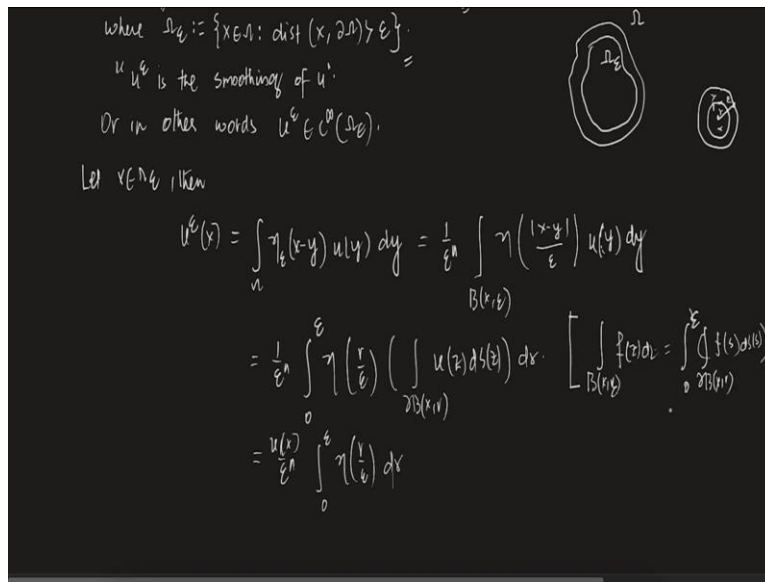 where Ω_ε := {x∈Ω : dist (x, ∂Ω) > ε}.
"u^ε is the smoothing of u".
Or in other words u^ε ∈ C^∞(Ω_ε).
Let x∈Ω_ε, then
u^ε(x) = ∫_Ω η_ε(x-y) u(y) dy = 1/ε^n ∫_{B(x,ε)} η(|x-y|/ε) u(y) dy
= 1/ε^n ∫_0^ε η(r/ε) ( ∫_{∂B(x,r)} u(z) ds(z) ) dr. [ ∫_{B(x,ε)} f(z) dz = ∫_0^ε ∮_{∂B(x,r)} f(s) ds(s)
= u(x)/ε^n ∫_0^ε η(r/ε) dr
Ω
Ω_ε